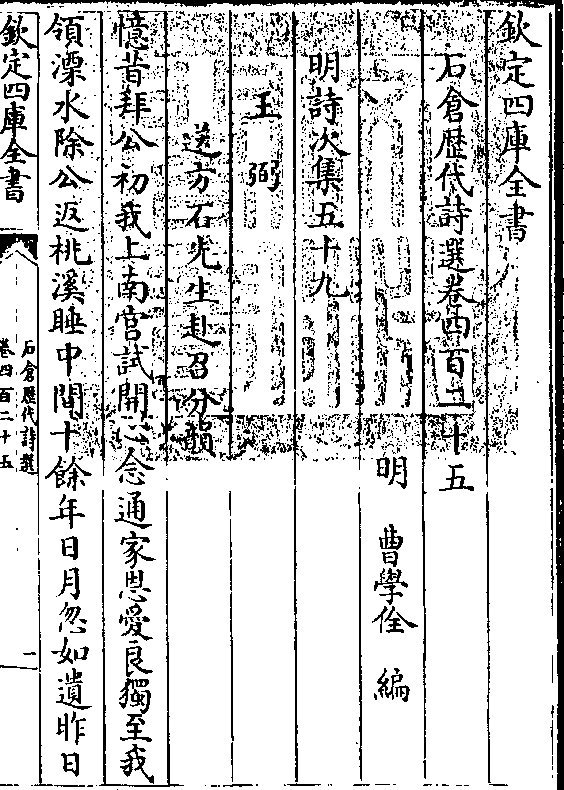 欽定四庫全書
石倉歴代詩選卷四百二十五
明 曹學佺 編
明詩次集五十九
王弼
送方石先生赴召分韻
憶昔拜公初我上南宫試開心念通家恩愛良獨至我
領溧水除公返桃溪睡中間十餘年日月忽如遺昨日
欽定四庫全書
石倉歴代詩選
卷四百二十五
一